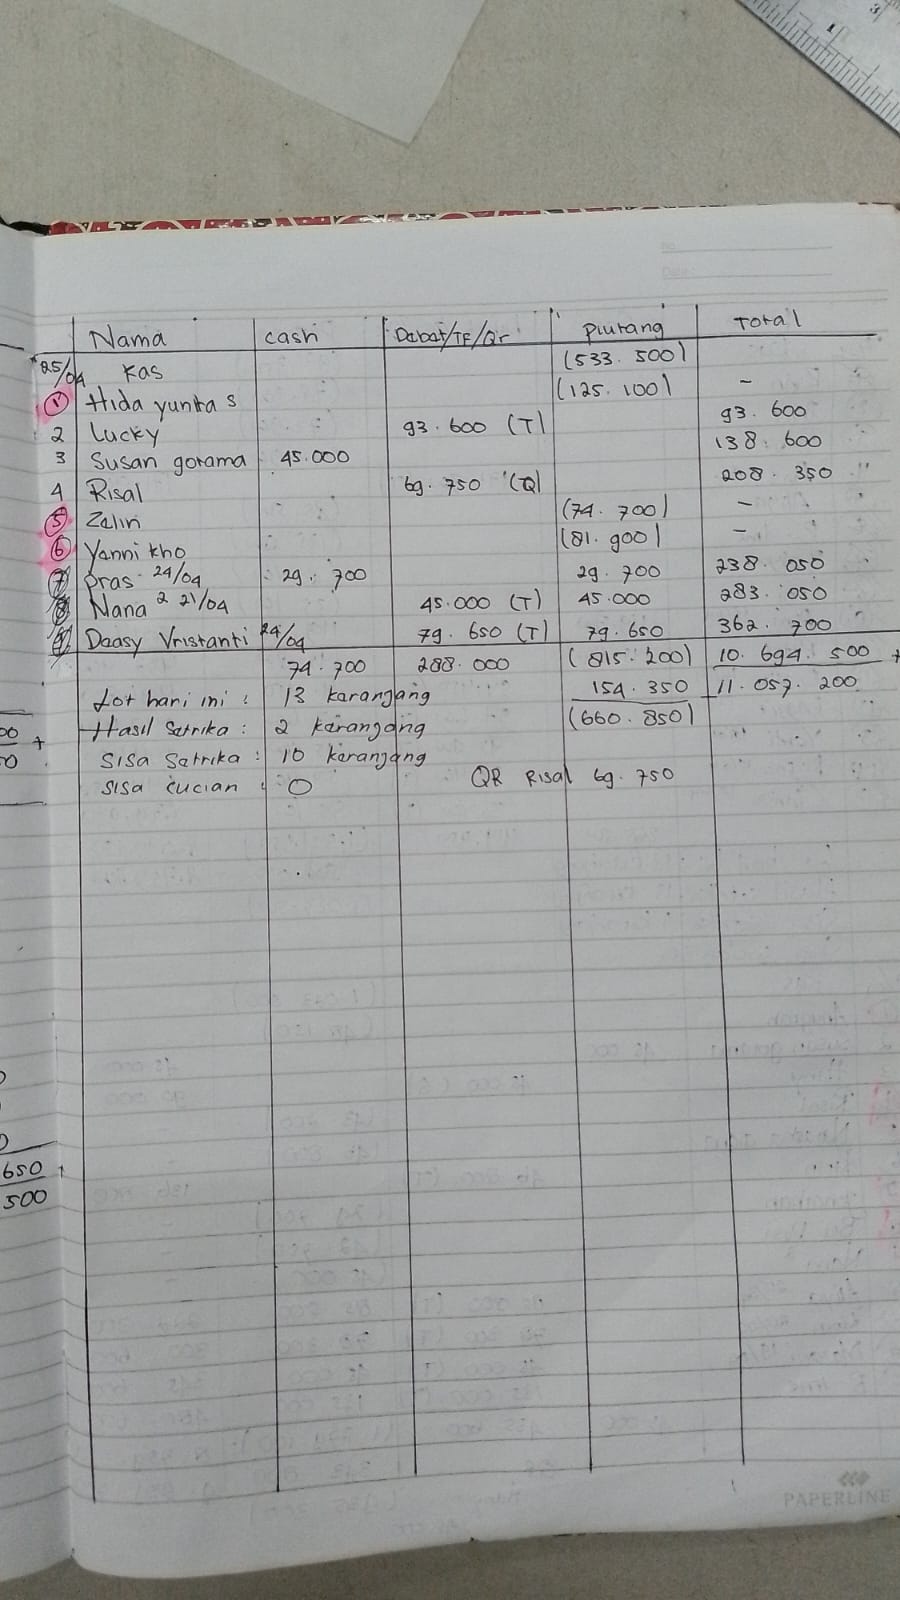 No
Date
Nama cash Debat/TF/Qr Piutang Total
25/04 Kas (533.500)
1 Hida yunita s (125.100) -
2 Lucky 93.600 (T) 93.600
3 Susan gorama 45.000 138.600
4 Risal 69.750 (Q) 208.350
5 Zelin (74.700) -
6 Yenni kho (81.900) -
7 Pras 24/04 29.700 29.700 238.050
8 Nana 2 21/04 45.000 (T) 45.000 283.050
9 Deasy Vristanti 24/04 79.650 (T) 79.650 362.700
74.700 288.000 (815.200) 10.694.500 +
Lot hari ini : 13 karangjang 154.350 11.057.200
Hasil Setrika : 2 karangjang (660.850)
Sisa Setrika : 10 keranjang
Sisa cucian : 0 QR Risal 69.750
00 +
50
650 +
500
PAPERLINE